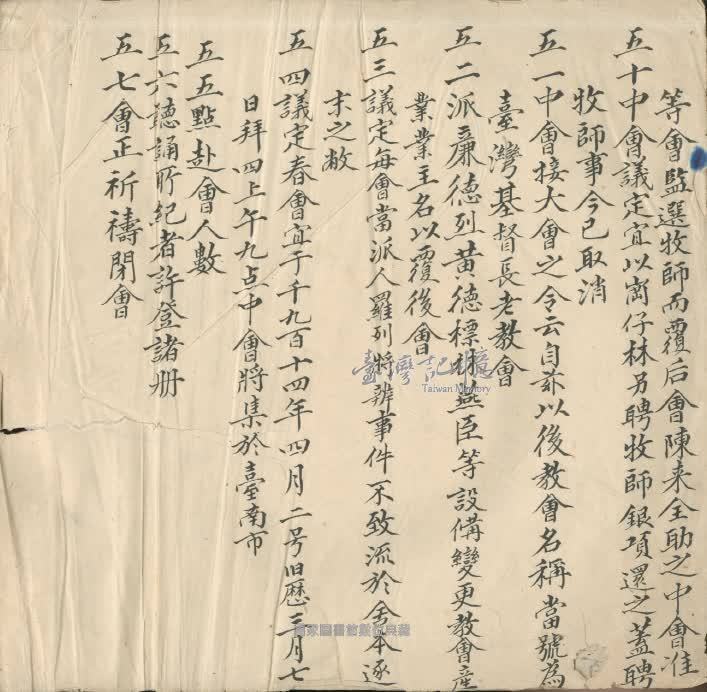 等會監選牧師而覆后會陳来全助之中會准
五十中會議定宜以崗仔林另聘牧師銀項還之蓋聘
牧師事今已取消
五一中會接大會之令云自茲以後教會名稱當號為
臺灣基督長老教會
五二派廉德烈黃德標林燕臣等設備變更教會産
業業主名以覆後會
五三議定每會當派人羅列將辦事件不致流於舍本逐
末之敝
五四議定春會宜于千九百十四年四月二号旧曆三月七
日拜四上午九点中會將集於臺南市
五五點赴會人數
五六聽誦所紀者許登諸册
五七會正祈禱閉會
臺灣記憶
Taiwan Memory
國家圖書館數位典藏